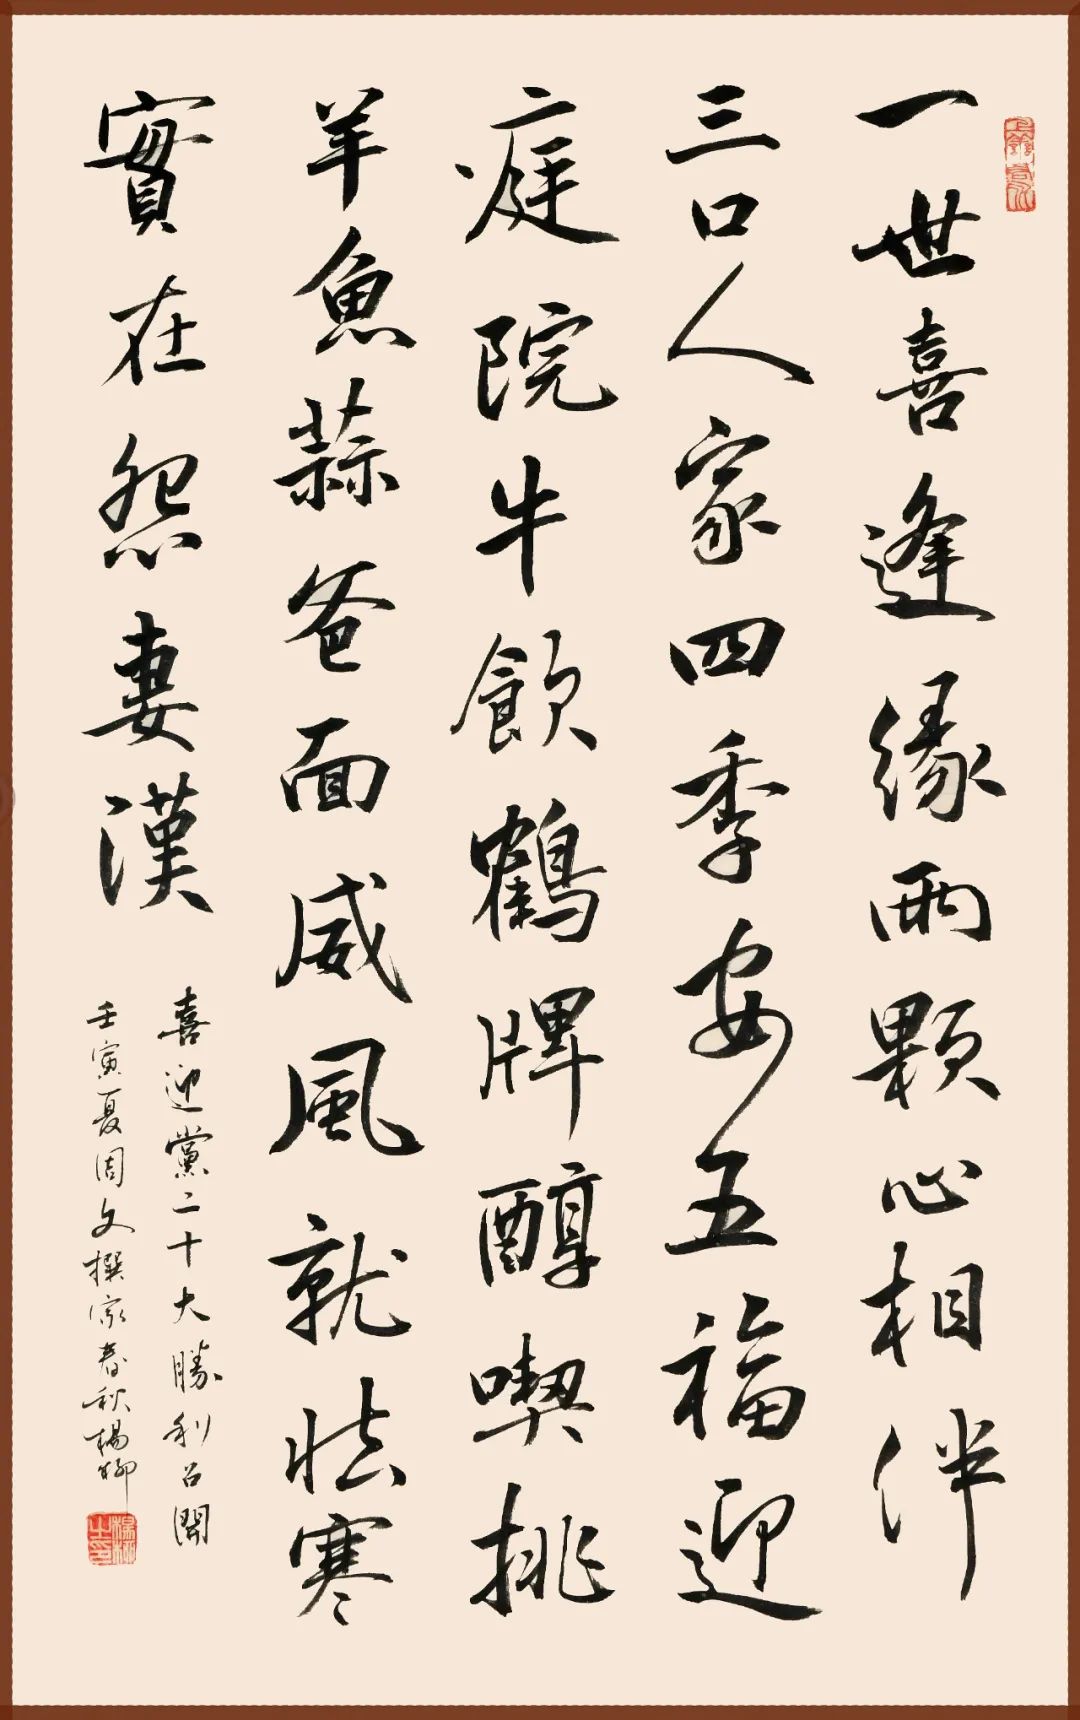 一世喜逢缘兩顆心相伴
三口人家四季安五福迎
庭院牛飲鶴牌醇喫挑
羊魚蒜爸面威風就怯寒
實在怨妻漢
喜迎黨二十大勝利召開
壬寅夏周文撰家春秋楊柳